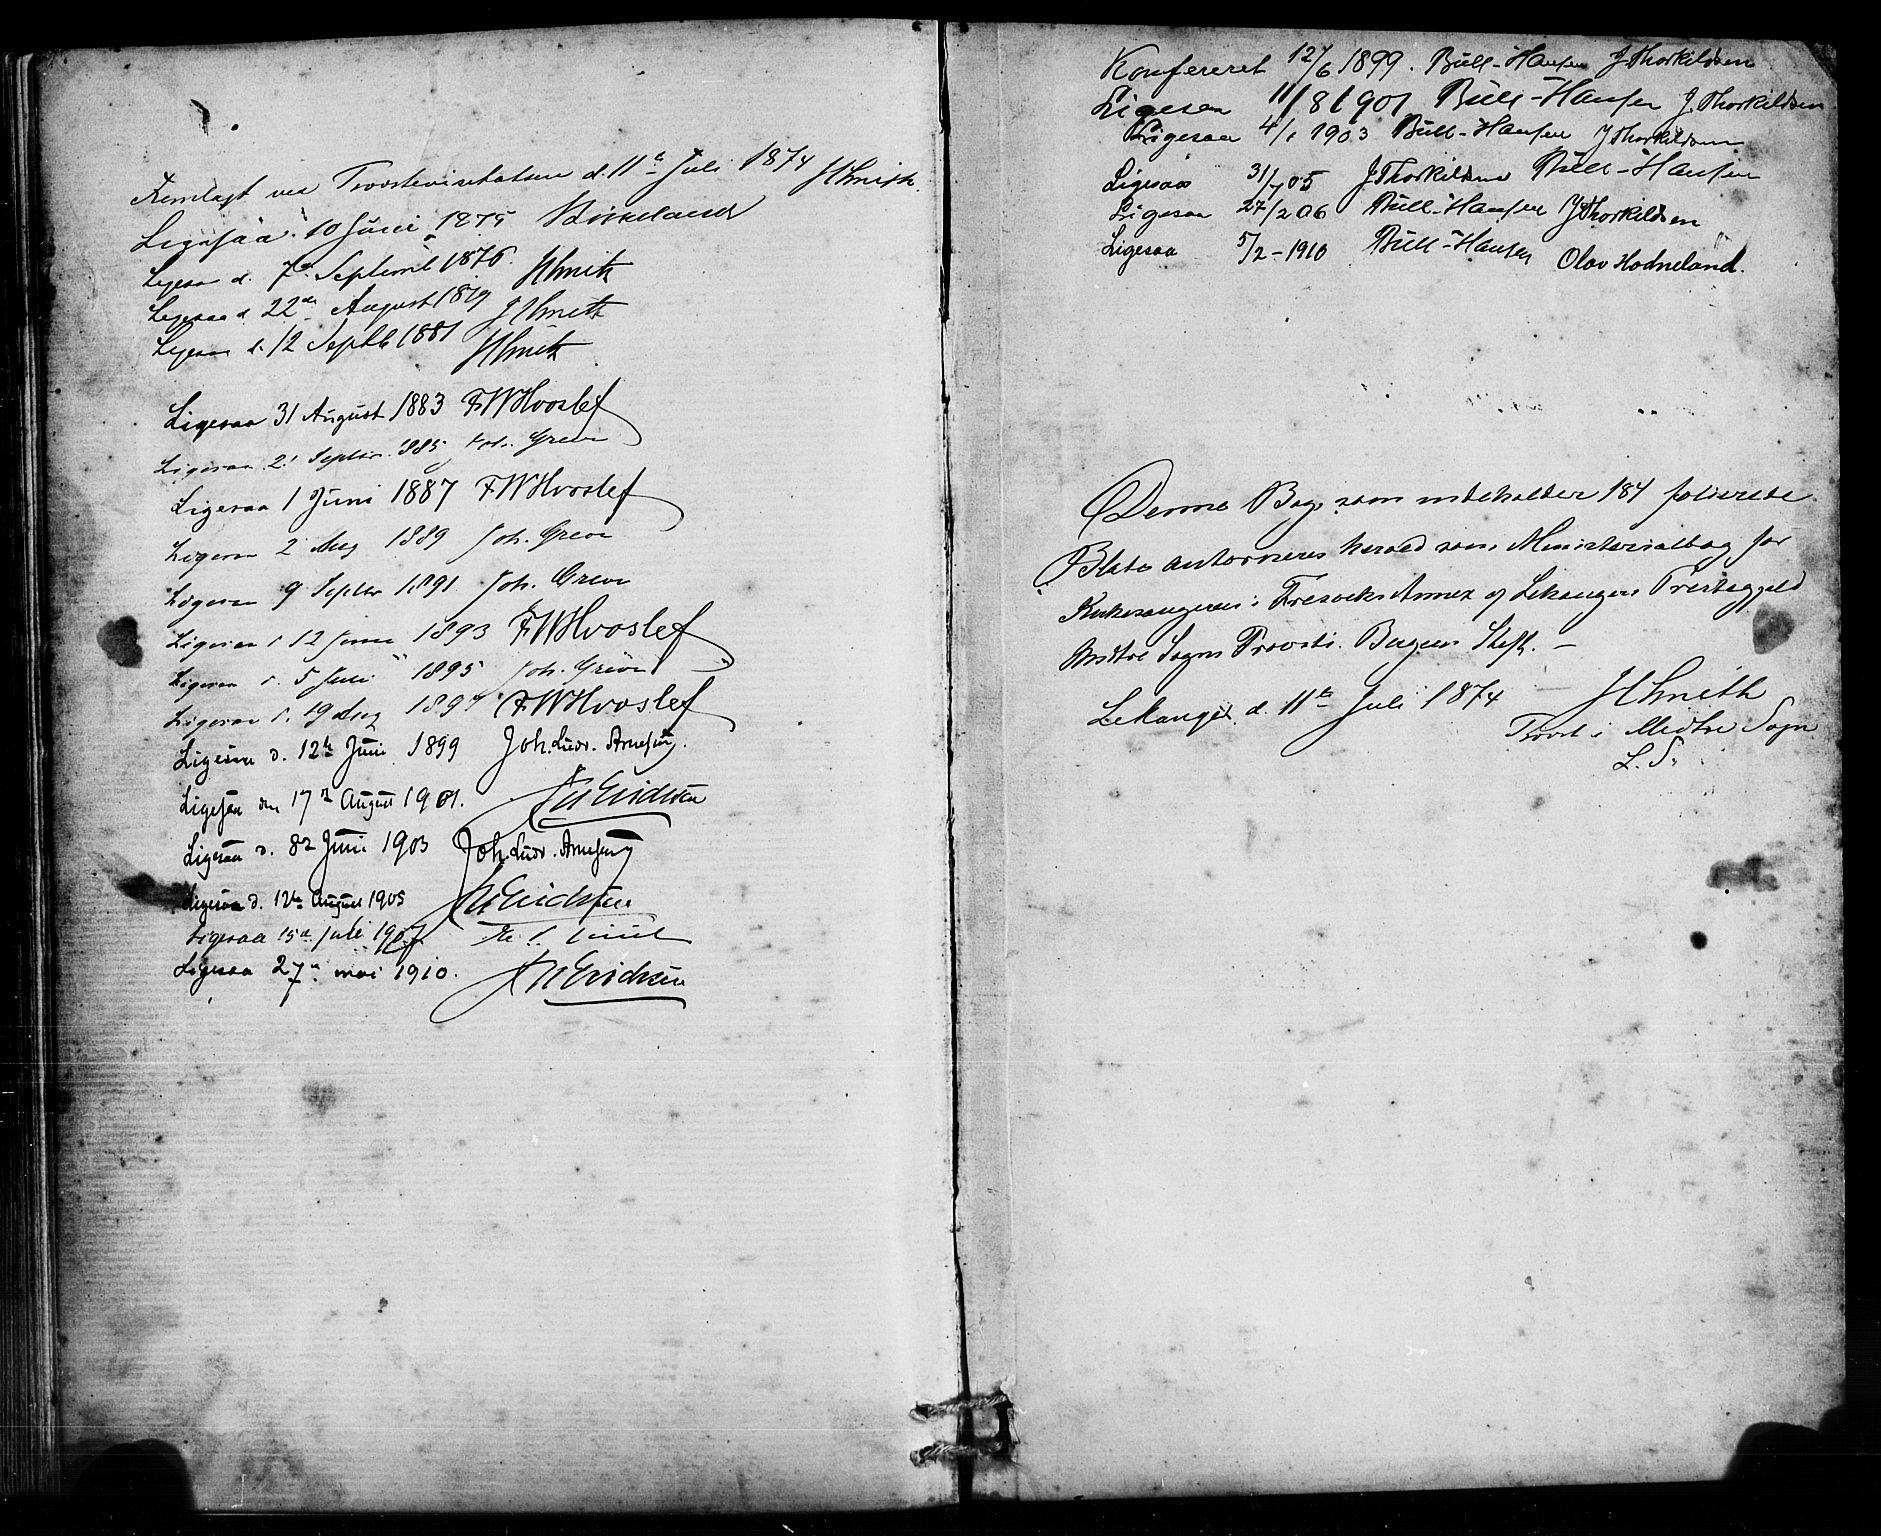 Fremlagt ved Provstevisitatsen d. 11te Juli 1874 JSmith.
Ligesaa 10 Juni 1875 Birkeland
Ligesaa d. 7de Septemb 1876. JSmith
Ligesaa d. 22de August 1879 JSmith
Ligesaa d. 12 Septb 1881 JSmith
Ligesaa 31 August 1883 F.W.Hvoslef
Ligesaa 21 Septbr. 1885 Joh. Greve
Ligesaa 1 Juni 1887 F.W.Hvoslef
Ligesaa 2 Aug 1889 Joh. Greve
Ligesaa 9 Septbr 1891 Joh. Greve
Ligesaa d. 12 Juni 1893 F.W.Hvoslef
Ligesaa d. 5 Juli 1895 Joh. Greve
Ligesaa d. 19 Aug 1897 F.W.Hvoslef
Ligesaa d. 12te Juni 1899 Joh. Ludv. Arnesen.
Ligesaa den 17de August 1901.
Ligesaa d. 8de Juni 1903 Joh. Ludv. Arnesen
Ligesaa d. 12te August 1905
Ligesaa 15de Juli 1907.
Ligesaa 27de mai 1910.
Konfereret 12/6 1899. Bull-Hansen J Thorkildsen
Ligesaa 11/8 1901 Bull-Hansen J. Thorkildsen.
Ligesaa 4/1 1903 Bull-Hansen J Thorkildsen
Ligesaa 31/7 05 J Thorkildsen Bull-Hansen
Ligesaa 27/2 06 Bull-Hansen J Thorkildsen
Ligesaa 5/2 - 1910 Bull-Hansen Olav Hodneland.
Denne Bog, som indeholder 184 folierede
Blade autoriseres herved som Ministerialbog for
Kirkesangeren i Fresviks Annex af Lekangers Præstegjeld
Midtre Sogns Provsti. Bergens Stift. –
Lekanger d. 11te Juli 1874 JSmith
Provst i Midtre Sogn
L. S.